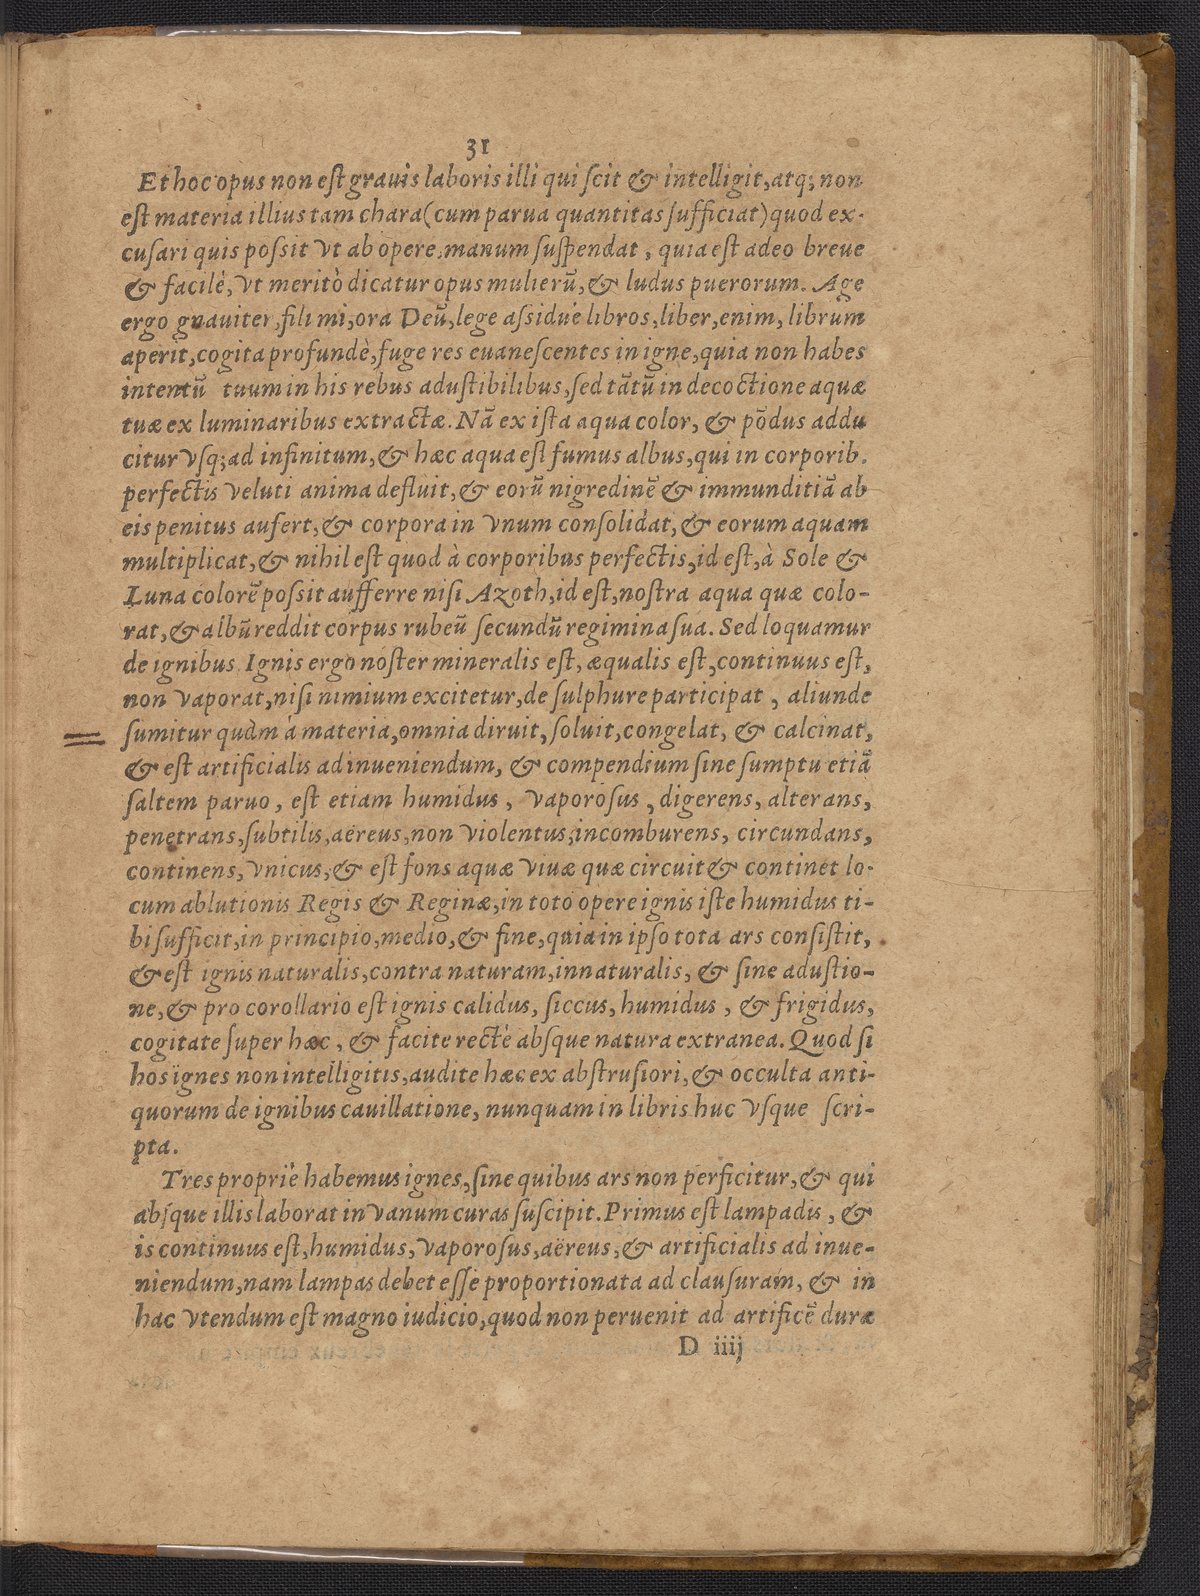 31
Et hoc opus non eſt grauis laboris illi qui ſcit & intelligit, atq; non
eſt materia illius tam chara (cum parua quantitas ſufficiat) quod ex-
cuſari quis poſsit vt ab opere manum ſuſpendat, quia eſt adeo breue
& facilè, vt meritò dicatur opus mulierũ, & ludus puerorum. Age
ergo gnauiter, fili mi, ora Deũ, lege aſsiduè libros, liber, enim, librum
aperit, cogita profundè, fuge res euaneſcentes in igne, quia non habes
intentũ tuum in his rebus aduſtibilibus, ſed tãtũ in decoctione aquæ
tuæ ex luminaribus extractæ. Nã ex iſta aqua color, & põdus addu
citur vſq; ad infinitum, & hæc aqua eſt fumus albus, qui in corporib.
perfectis veluti anima defluit, & eorũ nigredinẽ & immunditiã ab
eis penitus aufert, & corpora in vnum conſolidat, & eorum aquam
multiplicat, & nihil eſt quod à corporibus perfectis, id eſt, à Sole &
Luna colorẽ poſsit aufferre niſi Azoth, id eſt, noſtra aqua quæ colo-
rat, & albũ reddit corpus rubeũ ſecundũ regimina ſua. Sed loquamur
de ignibus. Ignis ergo noſter mineralis eſt, æqualis eſt, continuus eſt,
non vaporat, niſi nimium excitetur, de ſulphure participat, aliunde
ſumitur quàm à materia, omnia diruit, ſoluit, congelat, & calcinat,
& eſt artificialis ad inueniendum, & compendium ſine ſumptu etiã
ſaltem paruo, eſt etiam humidus, vaporoſus, digerens, alterans,
penetrans, ſubtilis, aëreus, non violentus, incomburens, circundans,
continens, vnicus, & eſt fons aquæ viuæ quæ circuit & continet lo-
cum ablutionis Regis & Reginæ, in toto opere ignis iſte humidus ti-
bi ſufficit, in principio, medio, & fine, quia in ipſo tota ars conſiſtit,
& eſt ignis naturalis, contra naturam, innaturalis, & ſine aduſtio-
ne, & pro corollario eſt ignis calidus, ſiccus, humidus, & frigidus,
cogitate ſuper hæc, & facite rectè abſque natura extranea. Quod ſi
hos ignes non intelligitis, audite hæc ex abſtruſiori, & occulta anti-
quorum de ignibus cauillatione, nunquam in libris huc vſque ſcri-
pta.
Tres propriè habemus ignes, ſine quibus ars non perficitur, & qui
abſque illis laborat in vanum curas ſuſcipit. Primus eſt lampadis, &
is continuus eſt, humidus, vaporoſus, aëreus, & artificialis ad inue-
niendum, nam lampas debet eſſe proportionata ad clauſuram, & in
hac vtendum eſt magno iudicio, quod non peruenit ad artificẽ duræ
D iiij